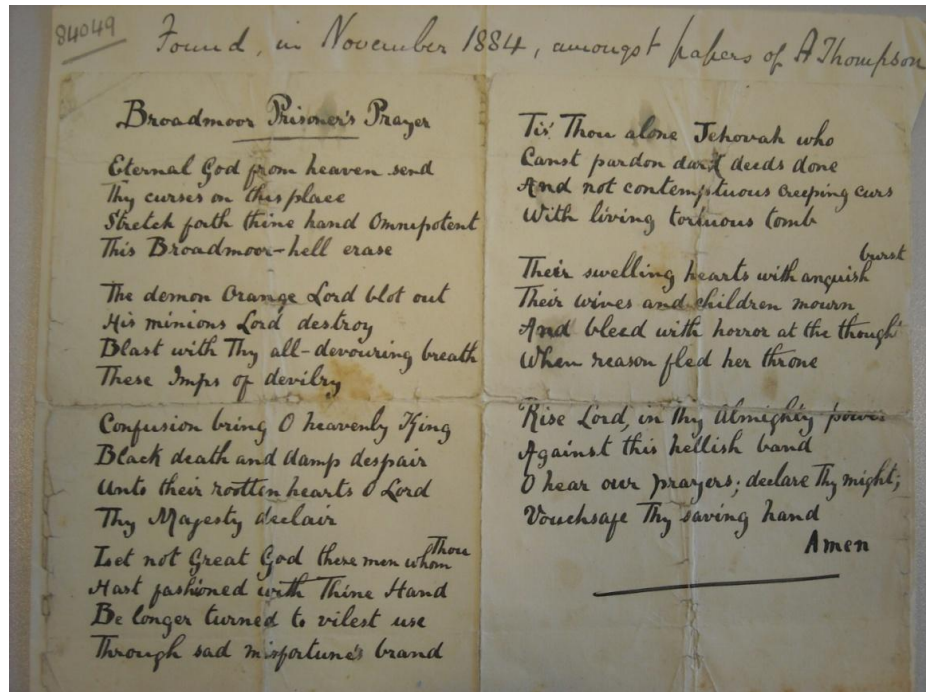 84049
Found, in November 1884, amongst papers of A Thompson
Broadmoor Prisoner's Prayer
Eternal God from heaven send
Thy curses on this place
Stretch forth thine hand Omnipotent
This Broadmoor-hell erase
The demon Orange Lord blot out
His minions Lord destroy
Blast with Thy all-devouring breath
These Imps of devilry
Confusion bring O heavenly King
Black death and damp despair
Unto their rootten hearts O Lord
Thy Majesty declair
Let not Great God these men whom Thou
Hast fashioned with Thine Hand
Be longer turned to vilest use
Through sad misfortune's brand
Tis' Thou alone Jehovah who
Canst pardon dark deeds done
And not contemptuous creeping curs
With living tortuous tomb
Their swelling hearts with anguish burst
Their wives and children mourn
And bleed with horror at the though'
When reason fled her throne
Rise Lord, in Thy Almighty power
Against this hellish band
O hear our prayers; declare Thy might;
Vouchsafe Thy saving hand
Amen